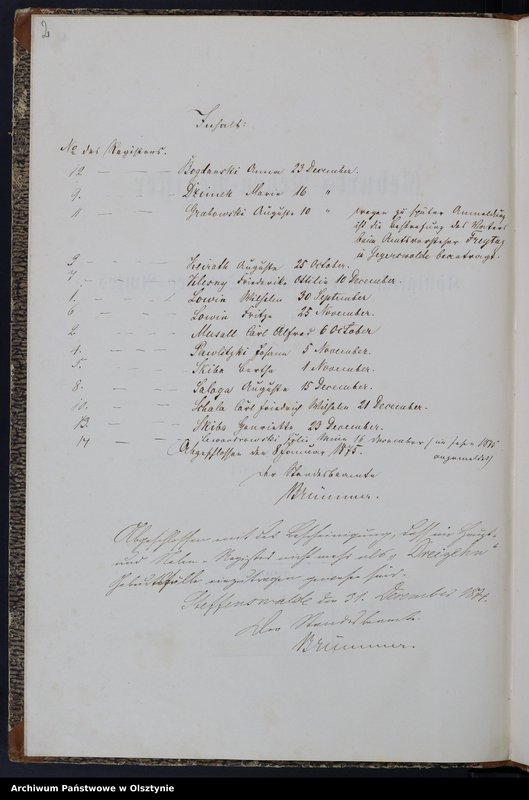 2
Inhalt:
No des Registers.
12 — Bogdanski Anna 23 December.
9. — Dzinck Marie 16 "
11 — Grabowski Auguste 10 " wegen zu später Anmeldung
ist die Bestrafung des Vaters
beim Amtsvorsteher Freytag
in Jegerswalde beantragt.
3 — — — Auguste 25 October.
7. — — — Friederike Ottilie 10 December
1. — — — Lowin Wilhelm 30 September
6 — — — Lowin Fritze 25 November.
2 — — — Musall Carl Alfred 6 October
4. — — — Pawlitzki Johann 5 November.
5. — — — Skiba Bertha 1 November.
8. — — — Saloga Auguste 15 December.
10. — — — Schala Carl Friedrich Wilhelm 21 December.
13. — — — Skiba Henriette 23 December.
14 — — — Lewandrowski Julie 16 December (im Jahre 1875
angemeldet)
Abgeschlossen den 8 Januar 1875.
Der Standesbeamte
Brümmer.
Abgeschlossen mit der Bescheinigung, daß im Haupt-
und Neben-Register nicht mehr als „Dreizehn“
Geburtsfälle einzutragen gewesen sind.
Steffenswalde den 31. December 1874.
Der Standesbeamte
Brümmer.
Archiwum Państwowe w Olsztynie